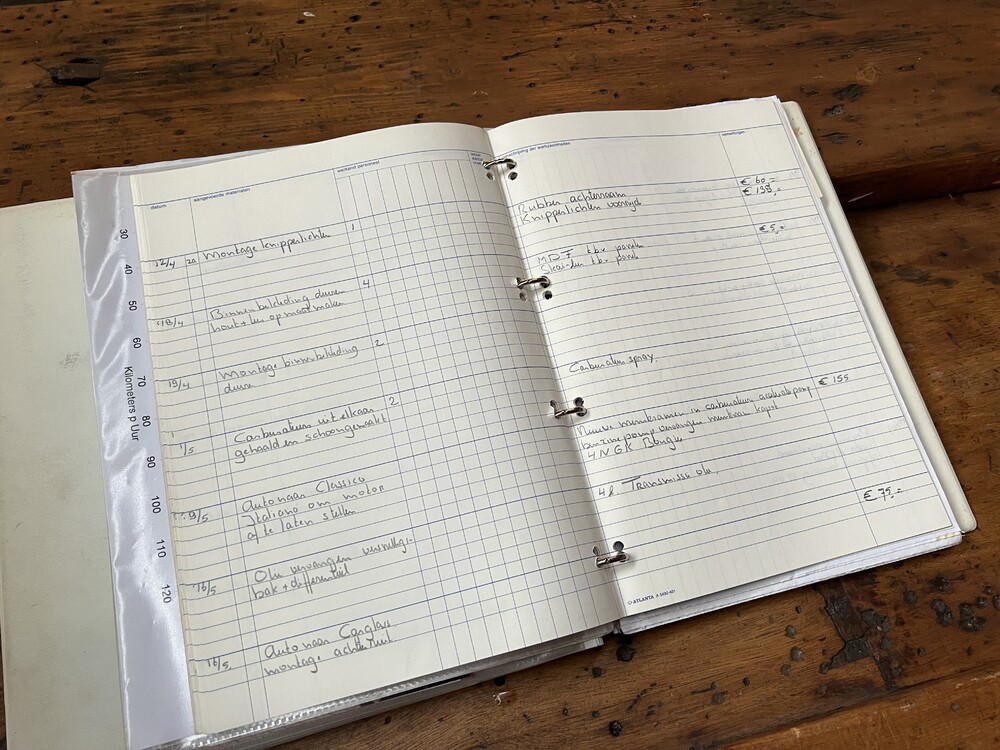 datum
aangevoerde materialen
werkend personeel
12/4 20 Montage knipperlichten 1
18/4 Binnenbekleding deuren 4
hout + leer op maat maken
19/4 Montage binnenbekleding 2
deuren
1/5 Carburateurs uit elkaar 2
gehaald en schoongemaakt
9/5 Auto naar Classico
Italiano om motor
af te laten stellen
16/5 Olie vervangen versnellings-
bak + differentieel
16/5. Auto naar Carglass
montage achterruit.
30
40
50
60
Kilometers p Uur
70
80
90
100
110
120
der werkzaamheden
Rubber achterraam € 60 =
Knipperlichten voorzijde € 198,=
€ 5,=
MDF t.b.v. panelen
Skai-leer t.b.v. panelen
Carburateur spray.
€ 155
Nieuwe membramen in carburateur
benzinepomp vervangen membraan kapot
4 NGK Bougies
4 l. Transmissie olie.
€ 75,=
ATLANTA